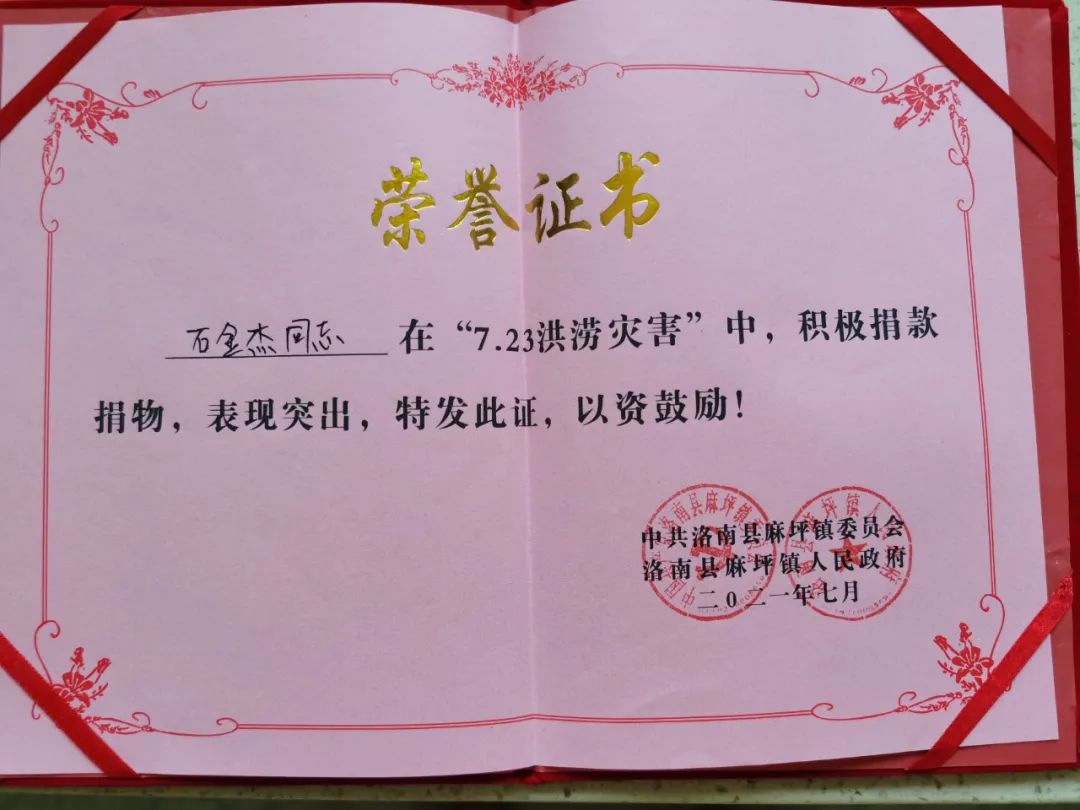 荣誉证书
石金杰同志 在“7.23洪涝灾害”中，积极捐款
捐物，表现突出，特发此证，以资鼓励！
中共洛南县麻坪镇委员会
洛南县麻坪镇人民政府
二0二一年七月